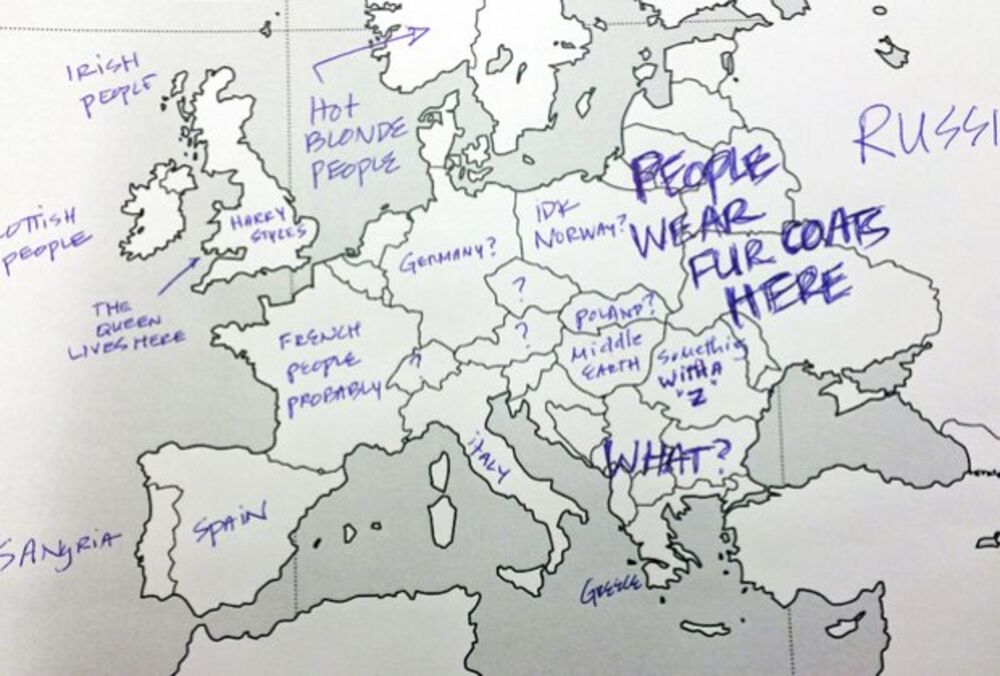 IRISH
PEOPLE
HOT
BLONDE
PEOPLE
RUSSI
OTTISH
PEOPLE
HARRY
STYLES
THE
QUEEN
LIVES HERE
GERMANY?
IDK
NORWAY?
PEOPLE
WEAR
FUR COATS
HERE
?
POLAND?
?
?
MiDDle
EARTH
SOMETHING
WITH A
"Z"
FRENCH
PEOPLE
PROBABLY
iTALY
WHAT?
SPAIN
SANGRIA
GREECE